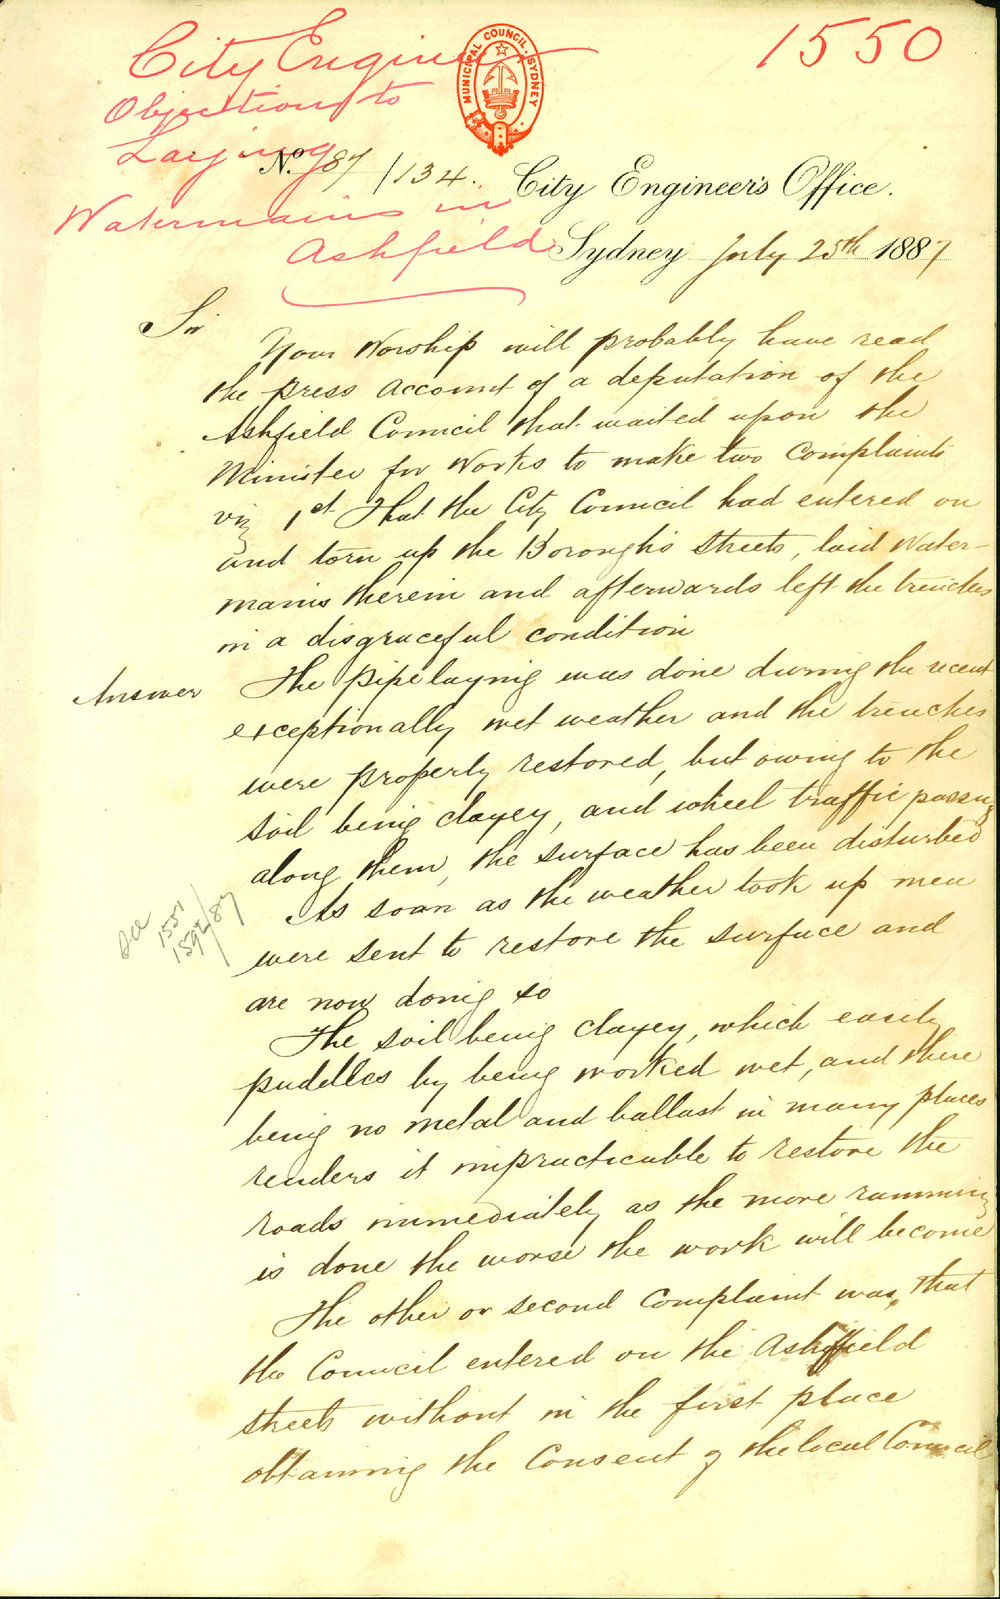 City Engineer
Objection to
Laying
Watermains in
Ashfield
1550
MUNICIPAL COUNCIL. SYDNEY
No. 87/134. City Engineer's Office.
Sydney July 25th 1887
Sir
Your Worship will probably have read
the press account of a deputation of the
Ashfield Council that waited upon the
Minister for Works to make two complaints
viz 1st That the City Council had entered on
and torn up the Borough's streets, laid Water-
mains therein and afterwards left the trenches
in a disgraceful condition
Answer The pipelaying was done during the recent
exceptionally wet weather and the trenches
were properly restored, but owing to the
soil being clayey, and wheel traffic passing
along them, the surface has been disturbed
As soon as the weather took up men
were sent to restore the surface and
are now doing so
see 1551
1592/87
The soil being clayey, which easily
puddles by being worked wet, and there
being no metal and ballast in many places
renders it impracticable to restore the
roads immediately as the more ramming
is done the worse the work will become
The other or second complaint was, that
the Council entered on the Ashfield
streets without in the first place
obtaining the Consent of the local Council